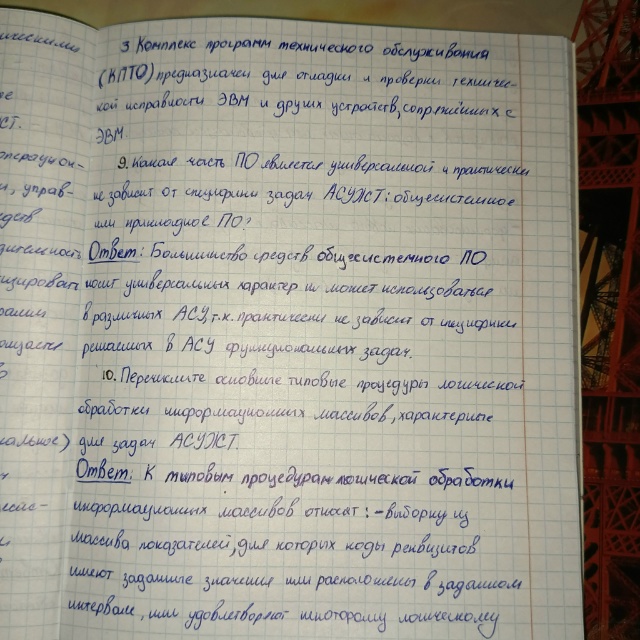 ическими
ое
ЖСТ.
операцион-
и, управ-
едств
дительность
ицировать
рамм
ющается
кальное)
3. Комплекс программ технического обслуживания
(КПТО) предназначен для отладки и проверки техничес-
кой исправности ЭВМ и других устройств, сопряжённых с
ЭВМ.
9. Какая часть ПО является универсальной и практически
не зависит от специфики задач АСУЖТ: общесистемное
или прикладное ПО?
Ответ: Большинство средств общесистемного ПО
носит универсальных характер и может использоваться
в различных АСУ, т.к. практически не зависит от специфики
решаемых в АСУ функциональных задач.
10. Перечислите основные типовые процедуры логической
обработки информационных массивов, характерные
для задач АСУЖТ.
Ответ: К типовым процедурам логической обработки
информационных массивов относят: - выборку из
массива показателей, для которых коды реквизитов
имеют заданные значения или расположены в заданном
интервале, или удовлетворяют некоторому логическому